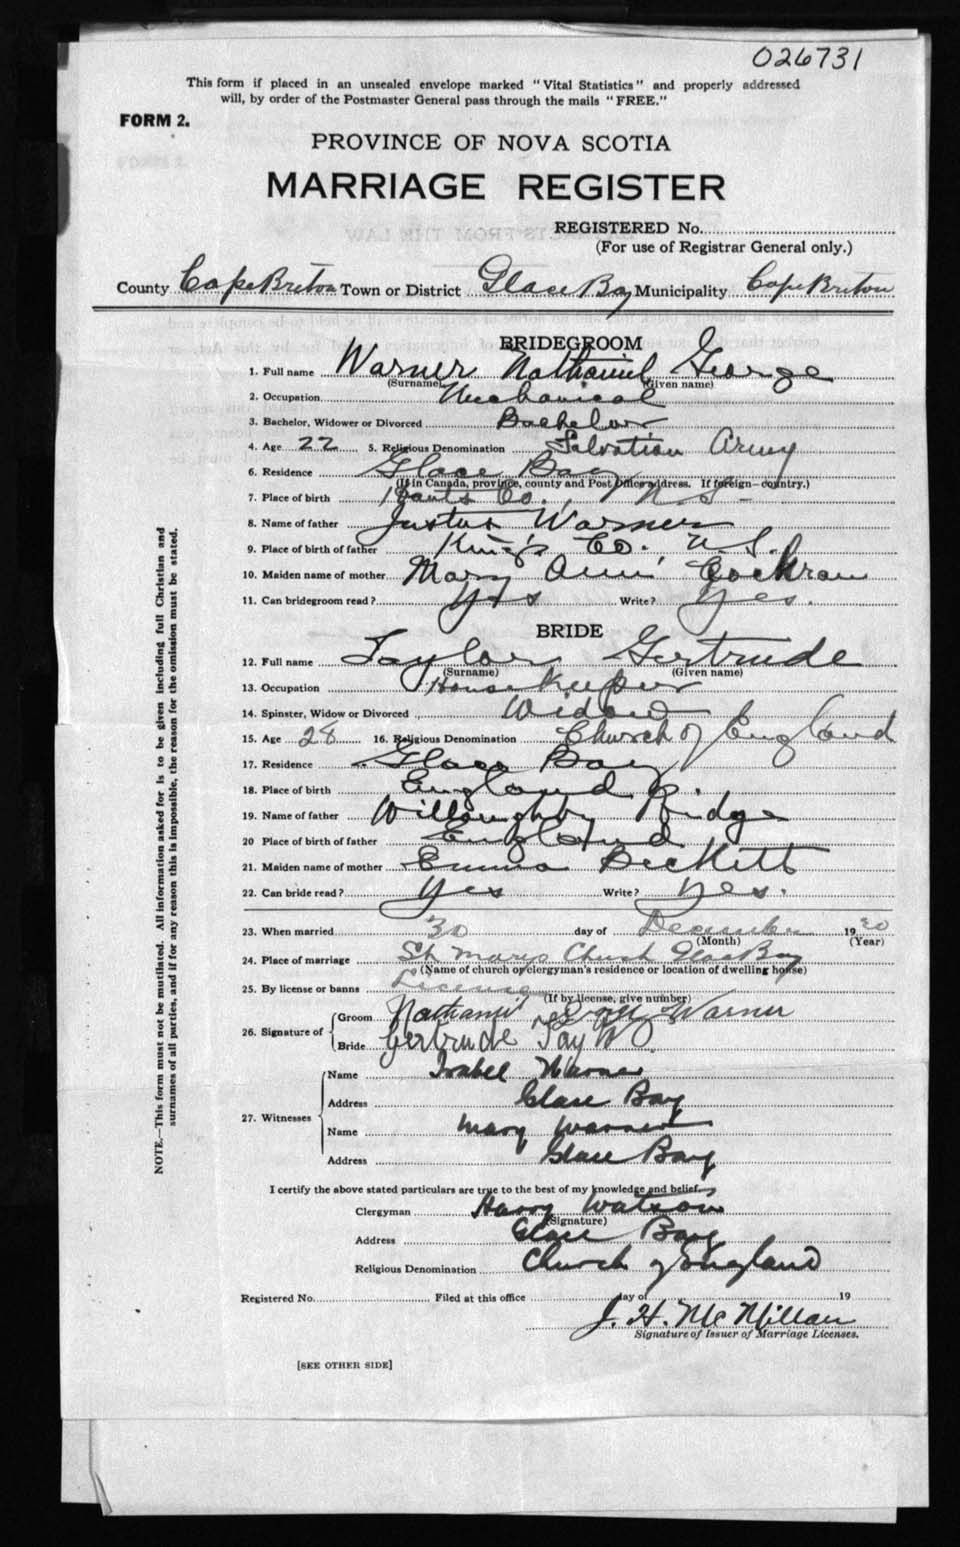 026731
This form if placed in an unsealed envelope marked "Vital Statistics" and properly addressed
will, by order of the Postmaster General pass through the mails "FREE."
FORM 2.
PROVINCE OF NOVA SCOTIA
MARRIAGE REGISTER
REGISTERED No.
(For use of Registrar General only.)
County Cape Breton Town or District Glace Bay Municipality Cape Breton
BRIDEGROOM
1. Full name Warner Nathaniel George
(Surname) (Given name)
2. Occupation Mechanical
3. Bachelor, Widower or Divorced Bachelor
4. Age 22 5. Religious Denomination Salvation Army
6. Residence Glace Bay
(If in Canada, province, county and Post Office address. If foreign—country.)
7. Place of birth Hants Co., N.S.
8. Name of father Justus Warner
9. Place of birth of father King's Co. N.S.
10. Maiden name of mother Mary Ann Cochran
11. Can bridegroom read? Yes Write? Yes.
BRIDE
12. Full name Taylor Gertrude
(Surname) (Given name)
13. Occupation House Keeper
14. Spinster, Widow or Divorced Widow
15. Age 28 16. Religious Denomination Church of England
17. Residence Glace Bay
18. Place of birth England
19. Name of father Willoughby Bridge
20 Place of birth of father England
21. Maiden name of mother Emma Beckett
22. Can bride read? Yes Write? Yes.
23. When married 30 day of December 1920
(Month) (Year)
24. Place of marriage St Marys Church Glace Bay
(Name of church or clergyman's residence or location of dwelling house)
25. By license or banns License
(If by license, give number)
26. Signature of Groom Nathaniel George Warner
Bride Gertrude Taylor
27. Witnesses Name Isabel Warner
Address Glace Bay
Name Mary Warner
Address Glace Bay
I certify the above stated particulars are true to the best of my knowledge and belief.
Clergyman Harry Watson
(Signature)
Address Glace Bay
Religious Denomination Church of England
Registered No. Filed at this office day of 19
J. H. McMillan
Signature of Issuer of Marriage Licenses.
[SEE OTHER SIDE]
NOTE.—This form must not be mutilated. All information asked for is to be given including full Christian and
surnames of all parties, and if for any reason this is impossible, the reason for the omission must be stated.